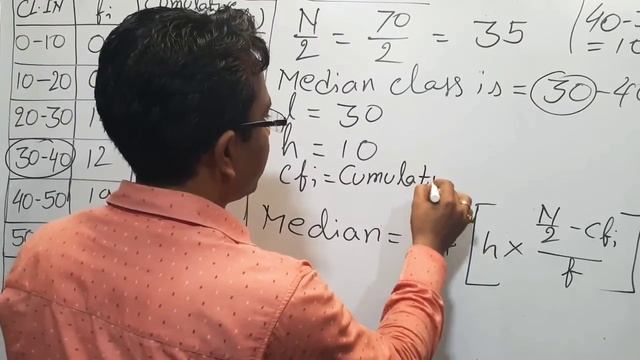 CL.IN fi Cumulative
0-10 0
10-20
20-30 1
30-40 12
40-50 19
N/2 = 70/2 = 35
40-
= 10
Median class is = 30-40
l = 30
h = 10
cfi = Cumulati
Median = [h × (N/2 - cfi)/f]